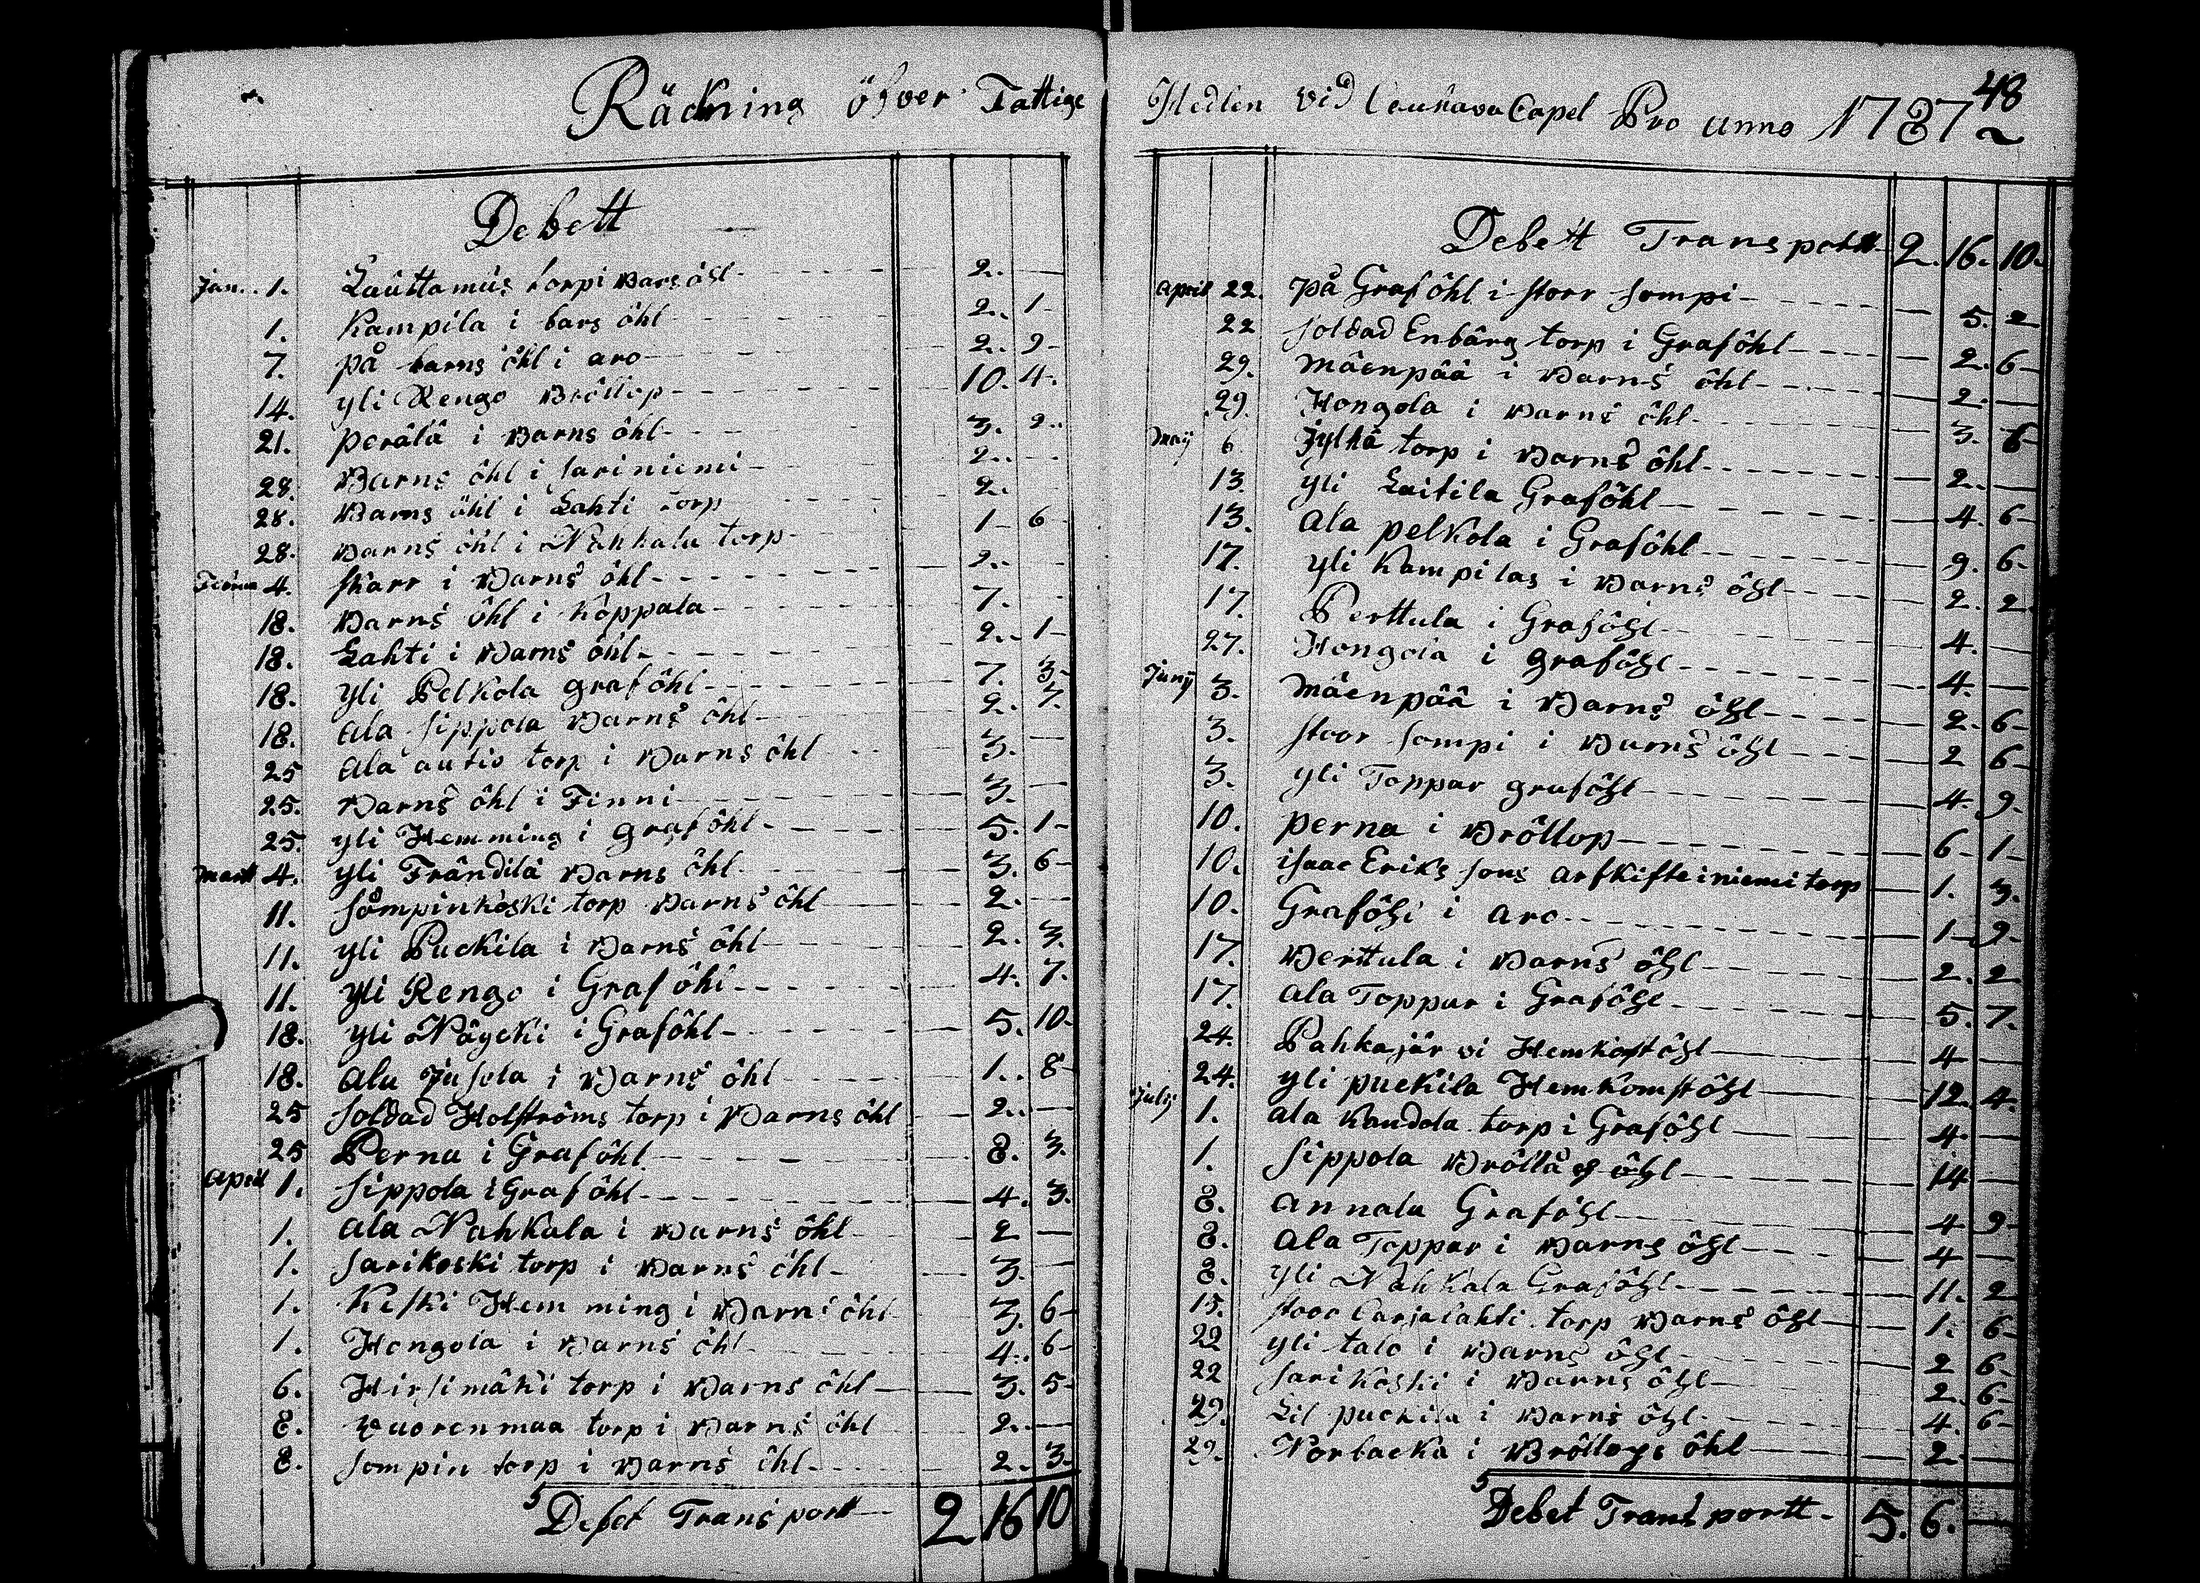 Räckning öfver Fattige Medlen vid Lauhava Capel Pro anno 1787
48
Debett
Jan. 1. Lauttamus torpi Bars öhl 2. —
1. Kampila i bars öhl 2. 1
7. på barns öhl i aro 2. 9
14. yli Rengo Bröllop 10. 4.
21. perälä i Barns öhl 3. 2.
28. Barns öhl i sariniemi 2. —
28. Barns öhl i Lahti torp 2.
28. Barns öhl i Nahkala torp 1 6
4. skarr i Barns öhl 2. —
18. Barns öhl i Koppala 7. —
18. Lahti i Barns öhl 2. 1
18. yli Pelkola graf öhl 7. 3
18. ala sippola Barns öhl 2. 7.
25 ala autio torp i Barns öhl 3. —
25. Barns öhl i Finni 3. —
25. yli Hemming i graf öhl 5. 1
Martt 4. yli Frändilä Barns öhl 3. 6
11. sompinkoski torp Barns öhl 2. —
11. yli Puckila i Barns öhl 2. 3.
11. yli Rengo i Graf öhl 4. 7.
18. yli Näycki i Graföhl 5. 10
18. ala Jusola i Barns öhl 1. 8
25 soldad Holströms torp i Barns öhl 2. —
25 Perna i Graföhl 8. 3.
April 1. sippola i Graf öhl 4. 3.
1. ala Nahkala i Barns öhl 2 —
1. sarikoski torp i Barns öhl 3. —
1. Keski Hemming i Barns öhl 3. 6
1. Hongola i Barns öhl 4. 6
6. Hirsimäki torp i Barns öhl 3. 5
8. vuorenmaa torp i Barns öhl 2. —
8. sompin torp i Barns öhl 2. 3.
Debet Transport 2 16 10
Debett Transportt 2. 16. 10.
April 22. på Graföhl i storr sompi 5. 2
22 soldad Enbärg torp i Graföhl 2. 6
29. mäenpää i Barns öhl 2. —
29. Hongola i Barns öhl 3. 6
Maij 6 Jylhä torp i Barns öhl 2. —
13. yli Laitila Graföhl 4. 6
13. ala pelkola i Graföhl 9. 6
17. yli Kampilas i Barns öhl 2. 2.
17. Perttula i Graföhl 4. —
27. Hongola i graföhl 4. —
Junij 3. mäenpää i Barns öhl 2 6
3. stoor sompi i Barns öhl 2 6
3. yli Toppar graföhl 4. 9.
10. perna i Bröllop 6 1
10. isaac Eriks sons arfkifte i niemi torp 1. 3.
10. Graföhl i aro 1 9
17. Perttula i Barns öhl 2. 2
17. ala Toppar i Graföhl 5. 7.
24. Pahkajärvi Hemkost öhl 4 —
24. yli puckila Hemkomst öhl 12. 4.
Julij 1. ala Kandola torp i Graföhl 4. —
1. sippola Bröllåp öhl 14 —
8. annala Graföhl 4 9
8. ala Toppar i Barns öhl 4 —
8. yli Nahkala Graföhl 11. 2
15. stoor Carjalahti torp Barns öhl 1. 6
22 yli talo i Barns öhl 2 6
22 sarikoski i Barns öhl 2. 6
29. Lil puckila i Barns öhl 4. 6
29. Norbacka i Bröllops öhl 2. —
Debet Transportt 5. 6. —